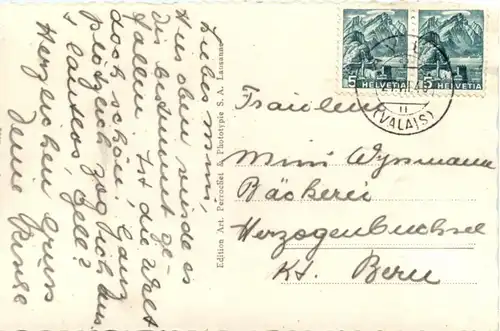 Liebes Mimi,
Hier oben würde es
Dir bestimmt ge-
fallen. Ist die Welt
doch schön. Ganz
plötzlich zog ich aus
lautlos, gell?
Herzlichen Gruss
Deine
Edition Art. Perrochet & Phototypie S. A. Lausanne
HELVETIA 5
HELVETIA 5
(VALAIS)
Fräulein
Mimi Wyssmann
Bäckerei
Herzogenbuchsee
Kt. Bern